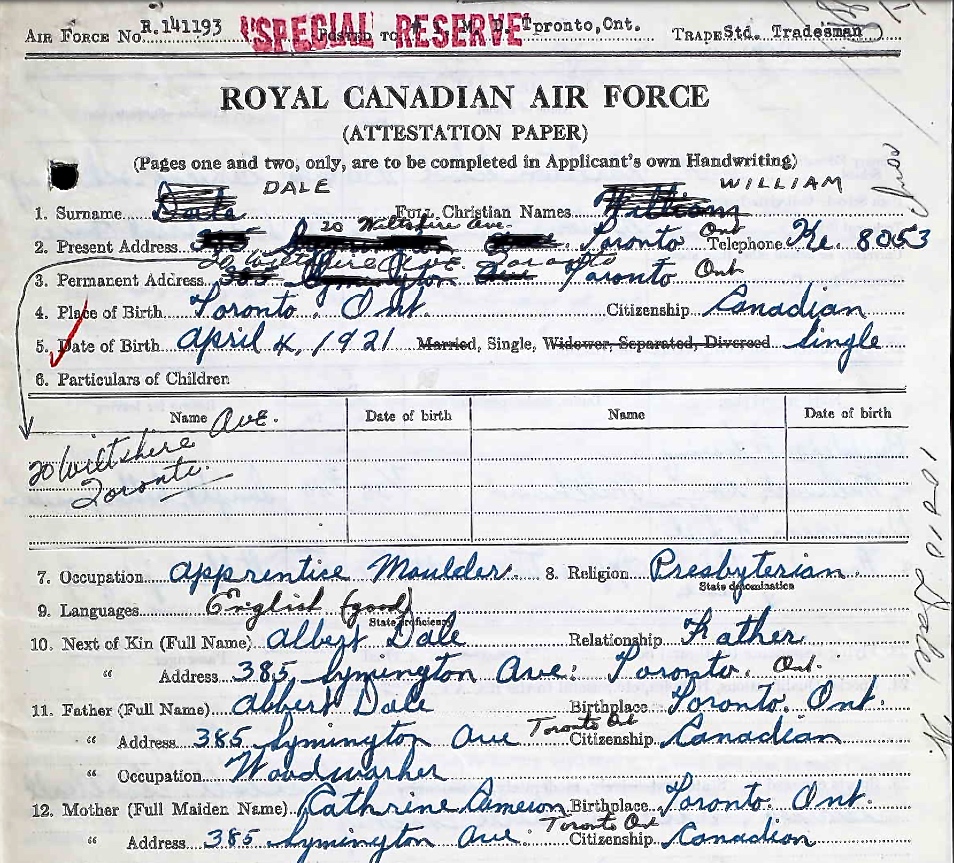 AIR FORCE No. R.141193 "SPECIAL RESERVE" POSTED TO Toronto, Ont. TRADE Std. Tradesman
ROYAL CANADIAN AIR FORCE
(ATTESTATION PAPER)
(Pages one and two, only, are to be completed in Applicant's own Handwriting)
DALE WILLIAM
1. Surname Dale FULL Christian Names William
20 Wiltshire Ave. Ont
2. Present Address Toronto Telephone Ke. 8053
20 Wiltshire Ave. Toronto
3. Permanent Address 385 Symington Ave Toronto Ont
4. Place of Birth Toronto. Ont. Citizenship Canadian
5. Date of Birth April 4, 1921 Married, Single, Widower, Separated, Divorced Single
6. Particulars of Children
Name Date of birth Name Date of birth
20 Wiltshire Ave.
Toronto.
7. Occupation apprentice Moulder. 8. Religion Presbyterian.
State denomination
9. Languages English (good)
State proficiency
10. Next of Kin (Full Name) Albert Dale Relationship Father
" Address 385, Symington Ave. Toronto. Ont.
11. Father (Full Name) Albert Dale Birthplace Toronto. Ont.
" Address 385 Symington Ave Toronto Ont Citizenship Canadian
" Occupation Woodworker
12. Mother (Full Maiden Name) Cathrine Cameron Birthplace Toronto. Ont.
" Address 385 Symington Ave. Toronto Ont Citizenship Canadian